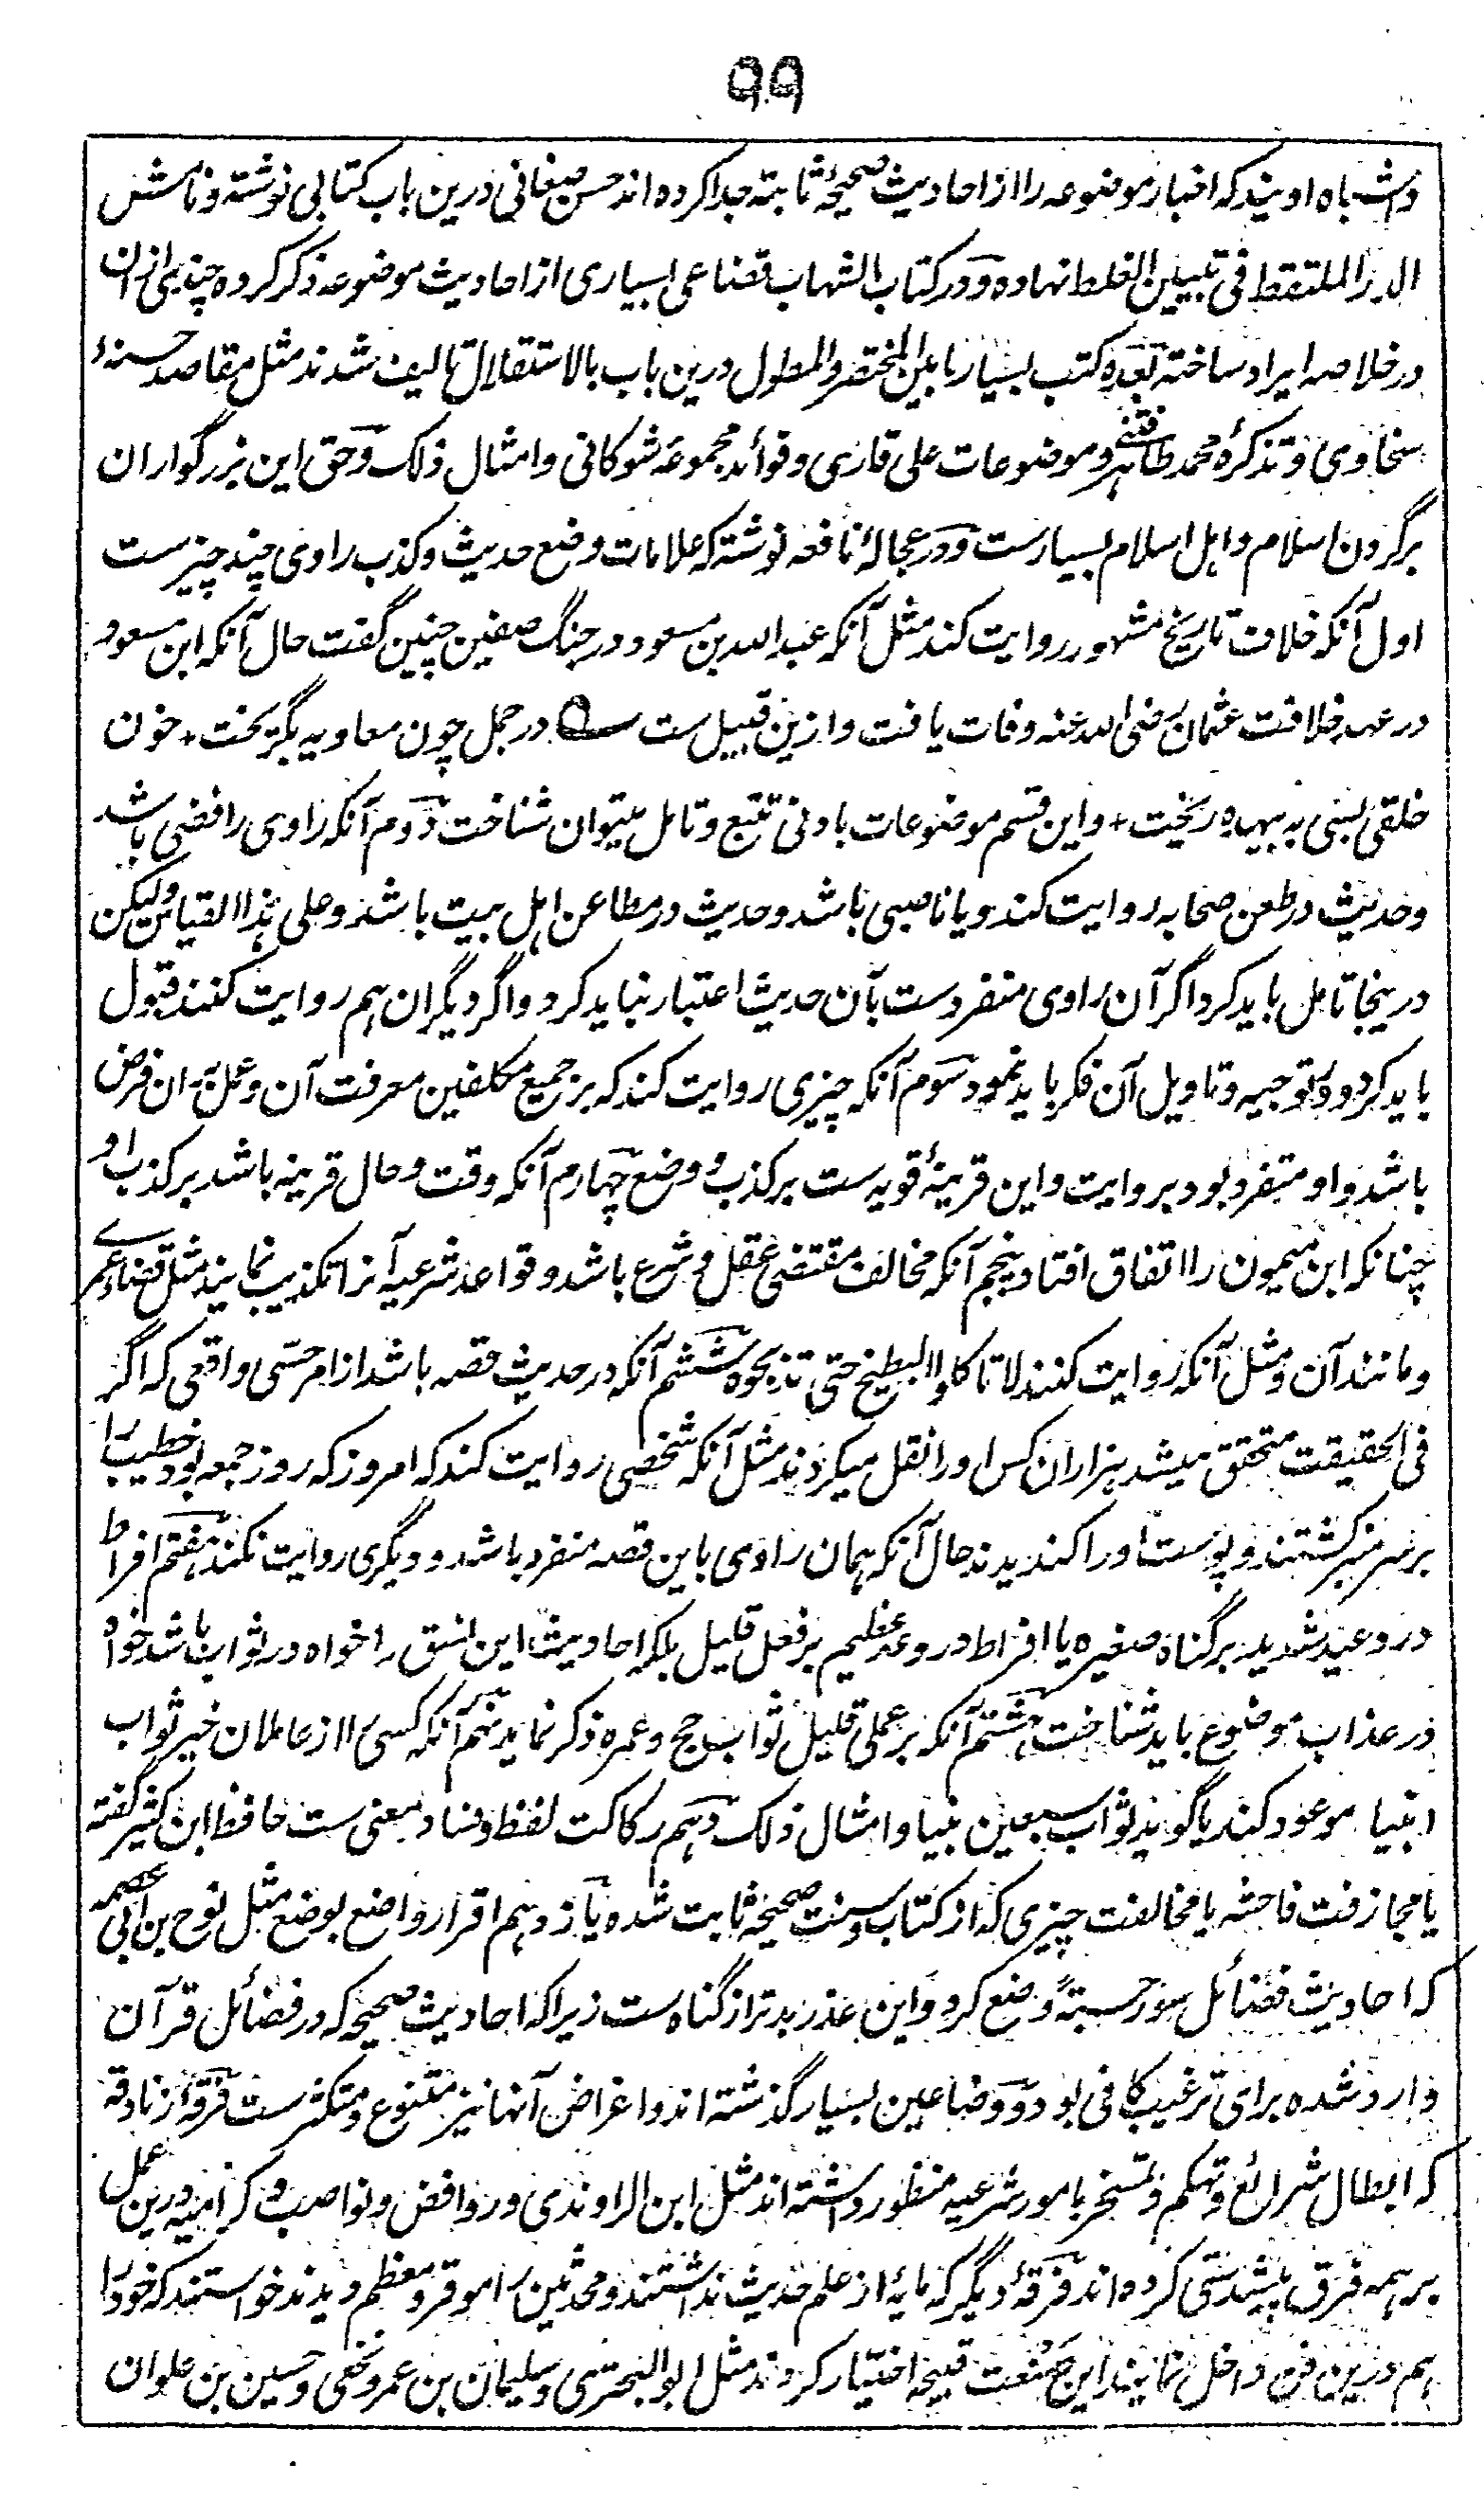 ۹۹
واشباه اویند که اخبار موضوعه را از احادیث صحیحهٔ ثابته جدا کرده اند حسن صغانی درین باب کتابی نوشته و نامش
الدر الملتقط فی تبیین الغلط نهاده و در کتاب الشهاب قضاعی بسیاری از احادیث موضوعه ذکر کرده چندی ازان
در خلاصه ایراد ساخته بعده کتب بسیار ما بین المختصر والمطول درین باب بالاستقلال تالیف شدند مثل مقاصد حسنهٔ
سخاوی و تذکرهٔ محمد طاهر فتنی و موضوعات علی قاری و فوائد مجموعه شوکانی و امثال ذلک و حق این بزرگواران
برگردن اسلام و اهل اسلام بسیارست و در عجالهٔ نافعه نوشته که علامات وضع حدیث و کذب راوی چند چیز ست
اول آنکه خلاف تاریخ مشهور روایت کند مثل آنکه عبدالله بن مسعود در جنگ صفین چنین گفت حال آنکه ابن مسعود
در عهد خلافت عثمان رضی الله عنه وفات یافت و ازین قبیل ست ؎ در جمل چون معاویه بگریخت + خون
خلقی بسی به بیهده ریخت + و این قسم موضوعات بادنی تتبع و تامل میتوان شناخت دوم آنکه راوی رافضی باشد
و حدیث در طعن صحابه روایت کند و یا ناصبی باشد و حدیث در مطاعن اهل بیت باشد و علی هذا القیاس ولیکن
درینجا تامل باید کرد اگر آن راوی منفرد ست بآن حدیث اعتبار نباید کرد و اگر دیگران هم روایت کنند قبول
باید کرد و در توجیه و تاویل آن فکر باید نمود سوم آنکه چیزی روایت کند که بر جمیع مکلفین معرفت آن و عمل بران فرض
باشد و او متفرد بود بروایت و این قرینهٔ قویه ست بر کذب و وضع چهارم آنکه وقت و حال قرینه باشد بر کذب او
چنانکه ابن میمون را اتفاق افتاد پنجم آنکه مخالف مقتضی عقل و شرع باشد و قواعد شرعیه آنرا تکذیب نمایند مثل قضاء عمری
و مانند آن و مثل آنکه روایت کنند لا تاکلوا البطیخ حتی تذبحوه ششم آنکه در حدیث قصه باشد از امر حسّی واقعی که اگر
فی الحقیقت متحقق میشد هزاران کس او را نقل میکردند مثل آنکه شخصی روایت کند که امروز که روز جمعه بود خطیب را
بر سر منبر کشتند و پوست او را کندیدند حال آنکه همان راوی باین قصه منفرد باشد و دیگری روایت نکند هفتم افراط
در وعید شدید بر گناه صغیره یا افراط در وعد عظیم بر فعل قلیل بلکه احادیث این نسق را خواه در ثواب باشد خواه
در عذاب موضوع باید شناخت هشتم آنکه بر عملی قلیل ثواب حج و عمره ذکر نماید نهم آنکه کسی را از عاملان خیر ثواب
انبیاء موعود کند یا گوید ثواب سبعین نبیا و امثال ذلک دهم رکاکت لفظ و فساد معنی ست حافظ ابن کثیر گفته
یا مجازفت فاحشه یا مخالفت چیزی که از کتاب و سنت صحیحه ثابت شده یازدهم اقرار واضع بوضع مثل نوح بن ابی عصمه
که احادیث فضائل سور حسبةً وضع کرد و این عذر بدتر از گناه ست زیرا که احادیث صحیحه که در فضائل قرآن
وارد شده برای ترغیب کافی بود و وضاعین بسیار گذشته اند و اغراض آنها نیز متنوع و متکثر ست فرقه از زنادقه
که ابطال شرائع و تهکم و تسخر بامور شرعیه منظور داشته اند مثل ابن الراوندی و روافض و نواصب و کرامیه درین عمل
بر همه فرق پیشدستی کرده اند فرقهٔ دیگر که مایهٔ از علم حدیث نداشتند و محدثین را موقر و معظم دیدند خواستند که خود را
هم درین فن داخل نمایند این صنعت قبیحه اختیار کردند مثل ابوالبختری و سلیمان بن عمرو نخعی و حسین بن علوان